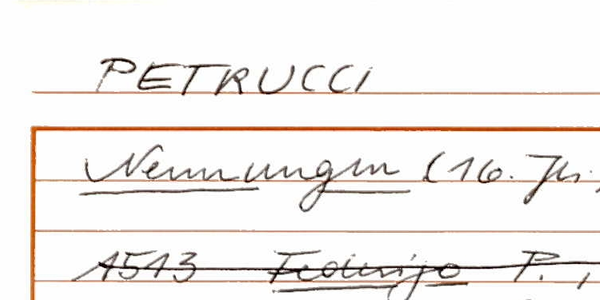 PETRUCCI
Nennungen (16. Jh.,
1513 Federigo P.,